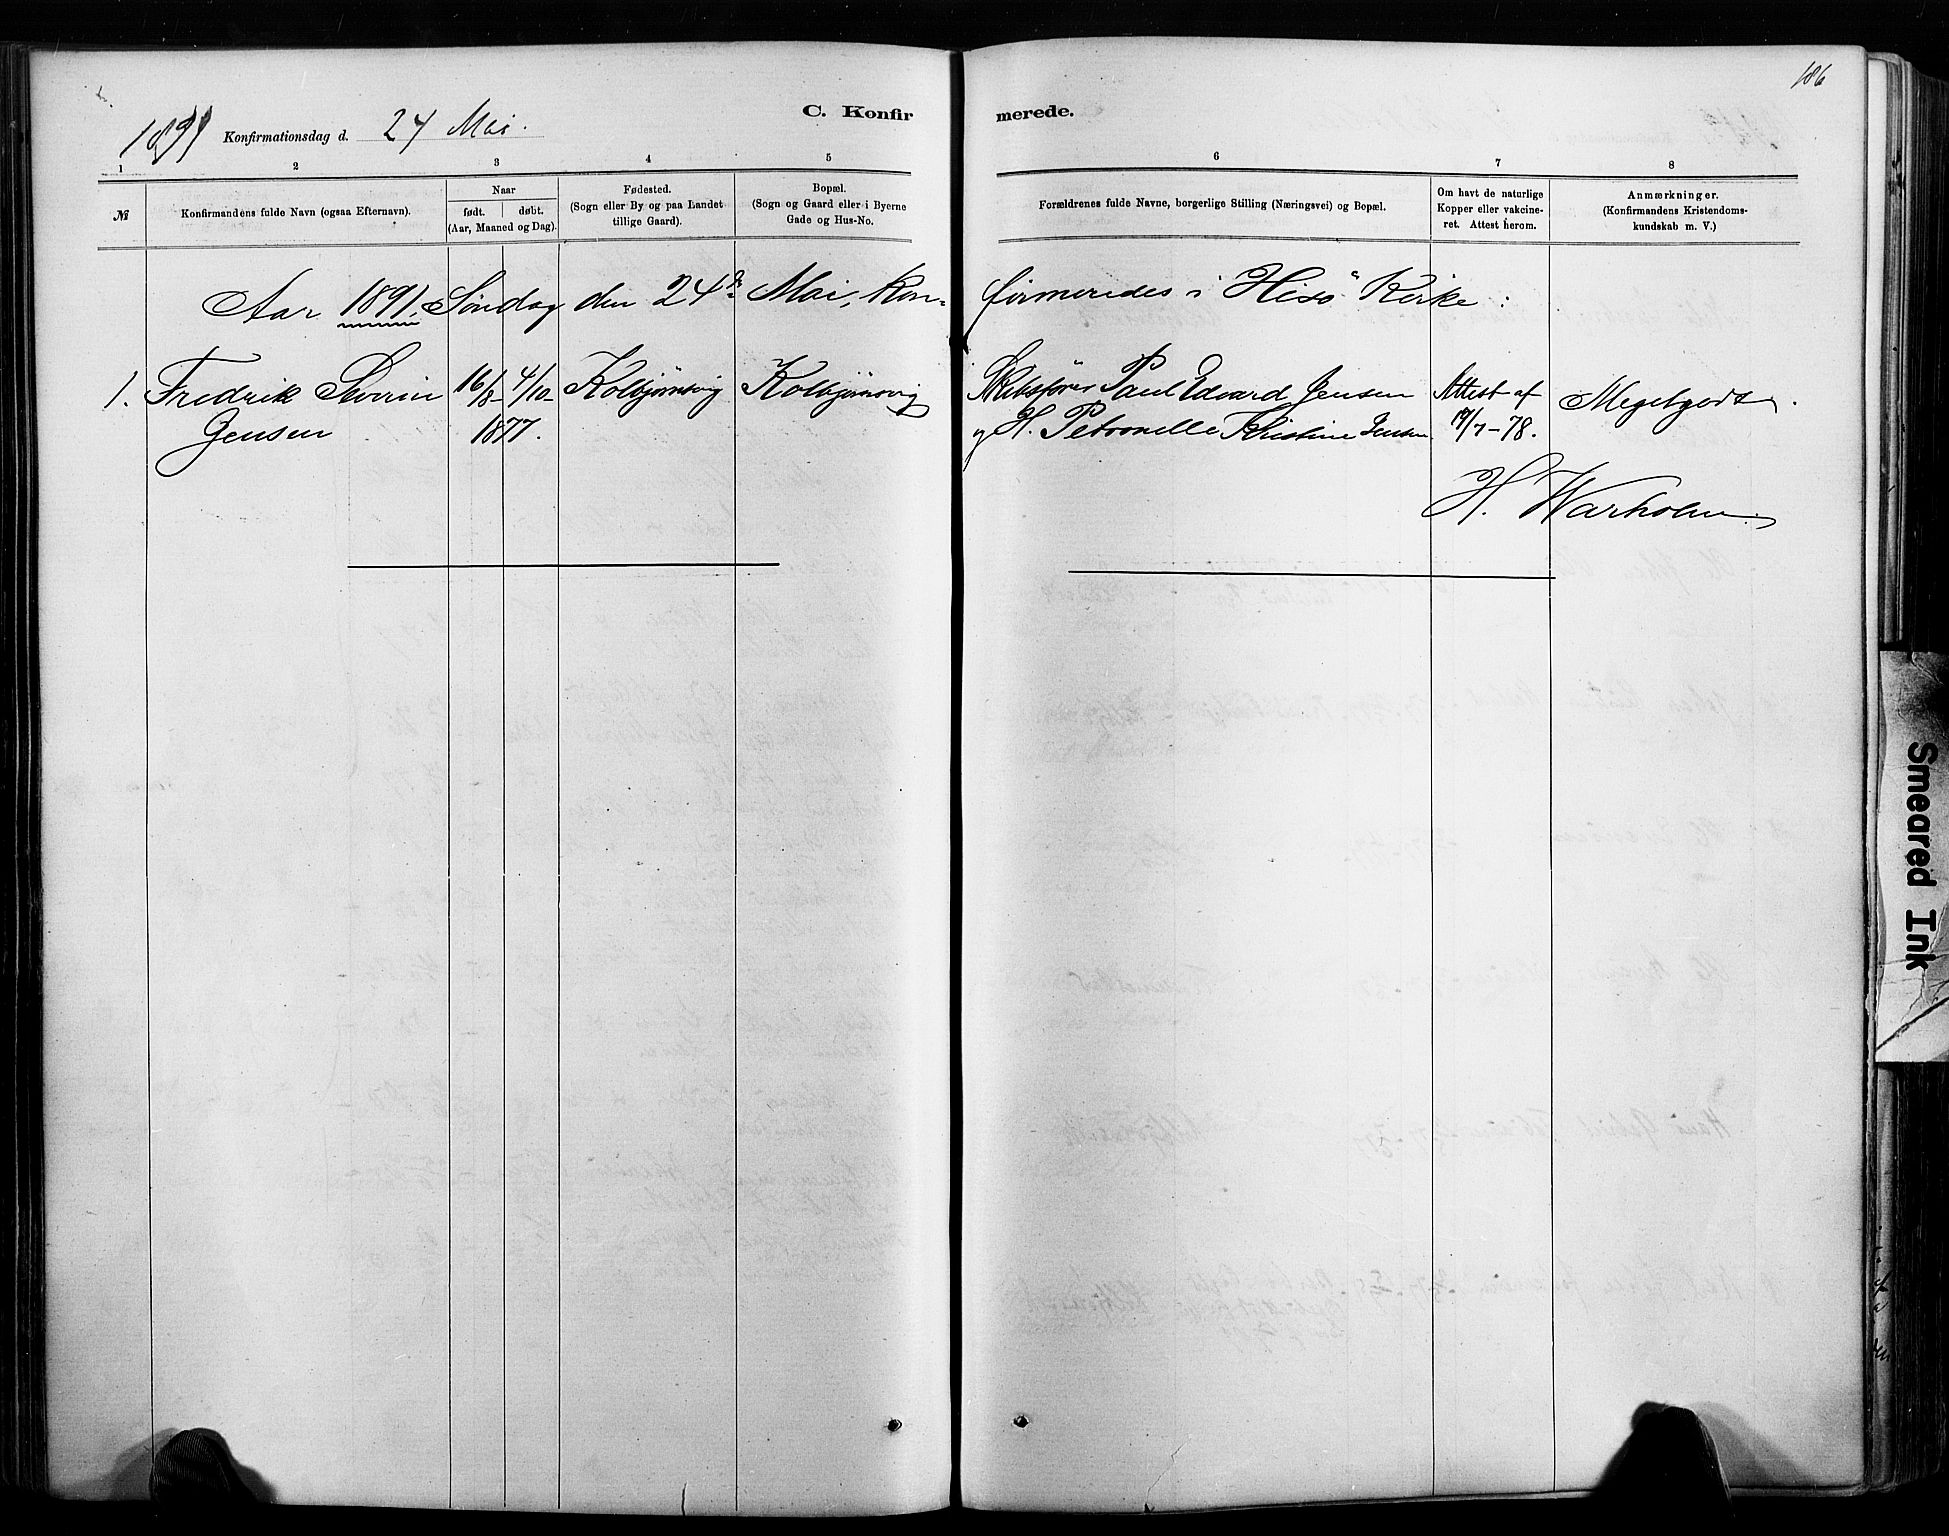 186
1891 Konfirmationsdag d. 24 Mai.
C. Konfirmerede.
1 2 3 4 5 6 7 8
№
Konfirmandens fulde Navn (ogsaa Efternavn).
Naar
født. døbt.
(Aar, Maaned og Dag).
Fødested.
(Sogn eller By og paa Landet
tillige Gaard).
Bopæl.
(Sogn og Gaard eller i Byerne
Gade og Hus-No.
Forældrenes fulde Navne, borgerlige Stilling (Næringsvei) og Bopæl.
Om havt de naturlige
Kopper eller vakcine-
ret. Attest herom.
Anmærkninger.
(Konfirmandens Kristendoms-
kundskab m. V.)
Aar 1891, Søndag den 24de Mai, kon= firmeredes i Hisö Kirke:
1. Fredrik Severin 16/8- 4/10- Kolbjørnsvig Kolbjørnsvig Skibsfører Paul Edvard Jensen Attest af Megetgodt.
Jensen 1877. og H. Petronelle Kristine Jensen /7-78.
H. Warholm.
Smeared Ink